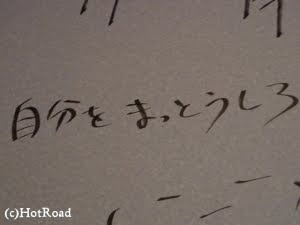 自分を まっとうしろ
(c)HotRoad